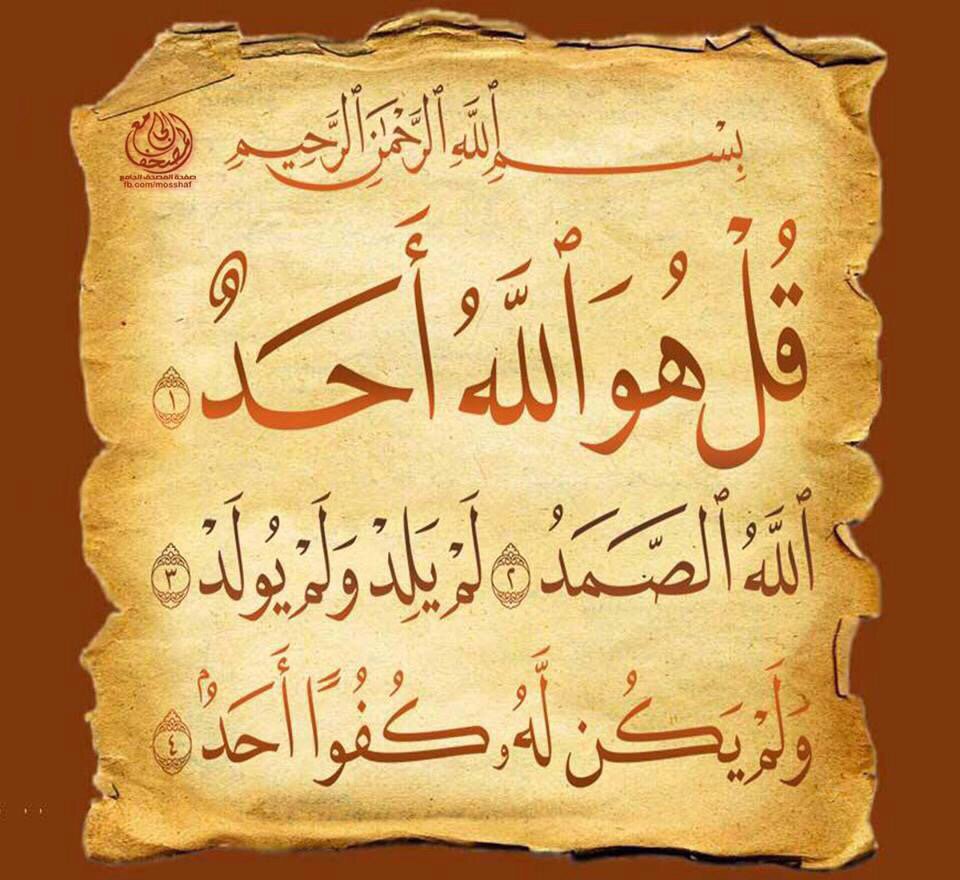 بِسْمِ ٱللَّهِ ٱلرَّحْمَٰنِ ٱلرَّحِيمِ
المصحف الجامع
صفحة المصحف الجامع
fb.com/mosshaf
قُلْ هُوَ ٱللَّهُ أَحَدٌ ١
ٱللَّهُ ٱلصَّمَدُ ٢ لَمْ يَلِدْ وَلَمْ يُولَدْ ٣
وَلَمْ يَكُن لَّهُۥ كُفُوًا أَحَدٌۢ ٤